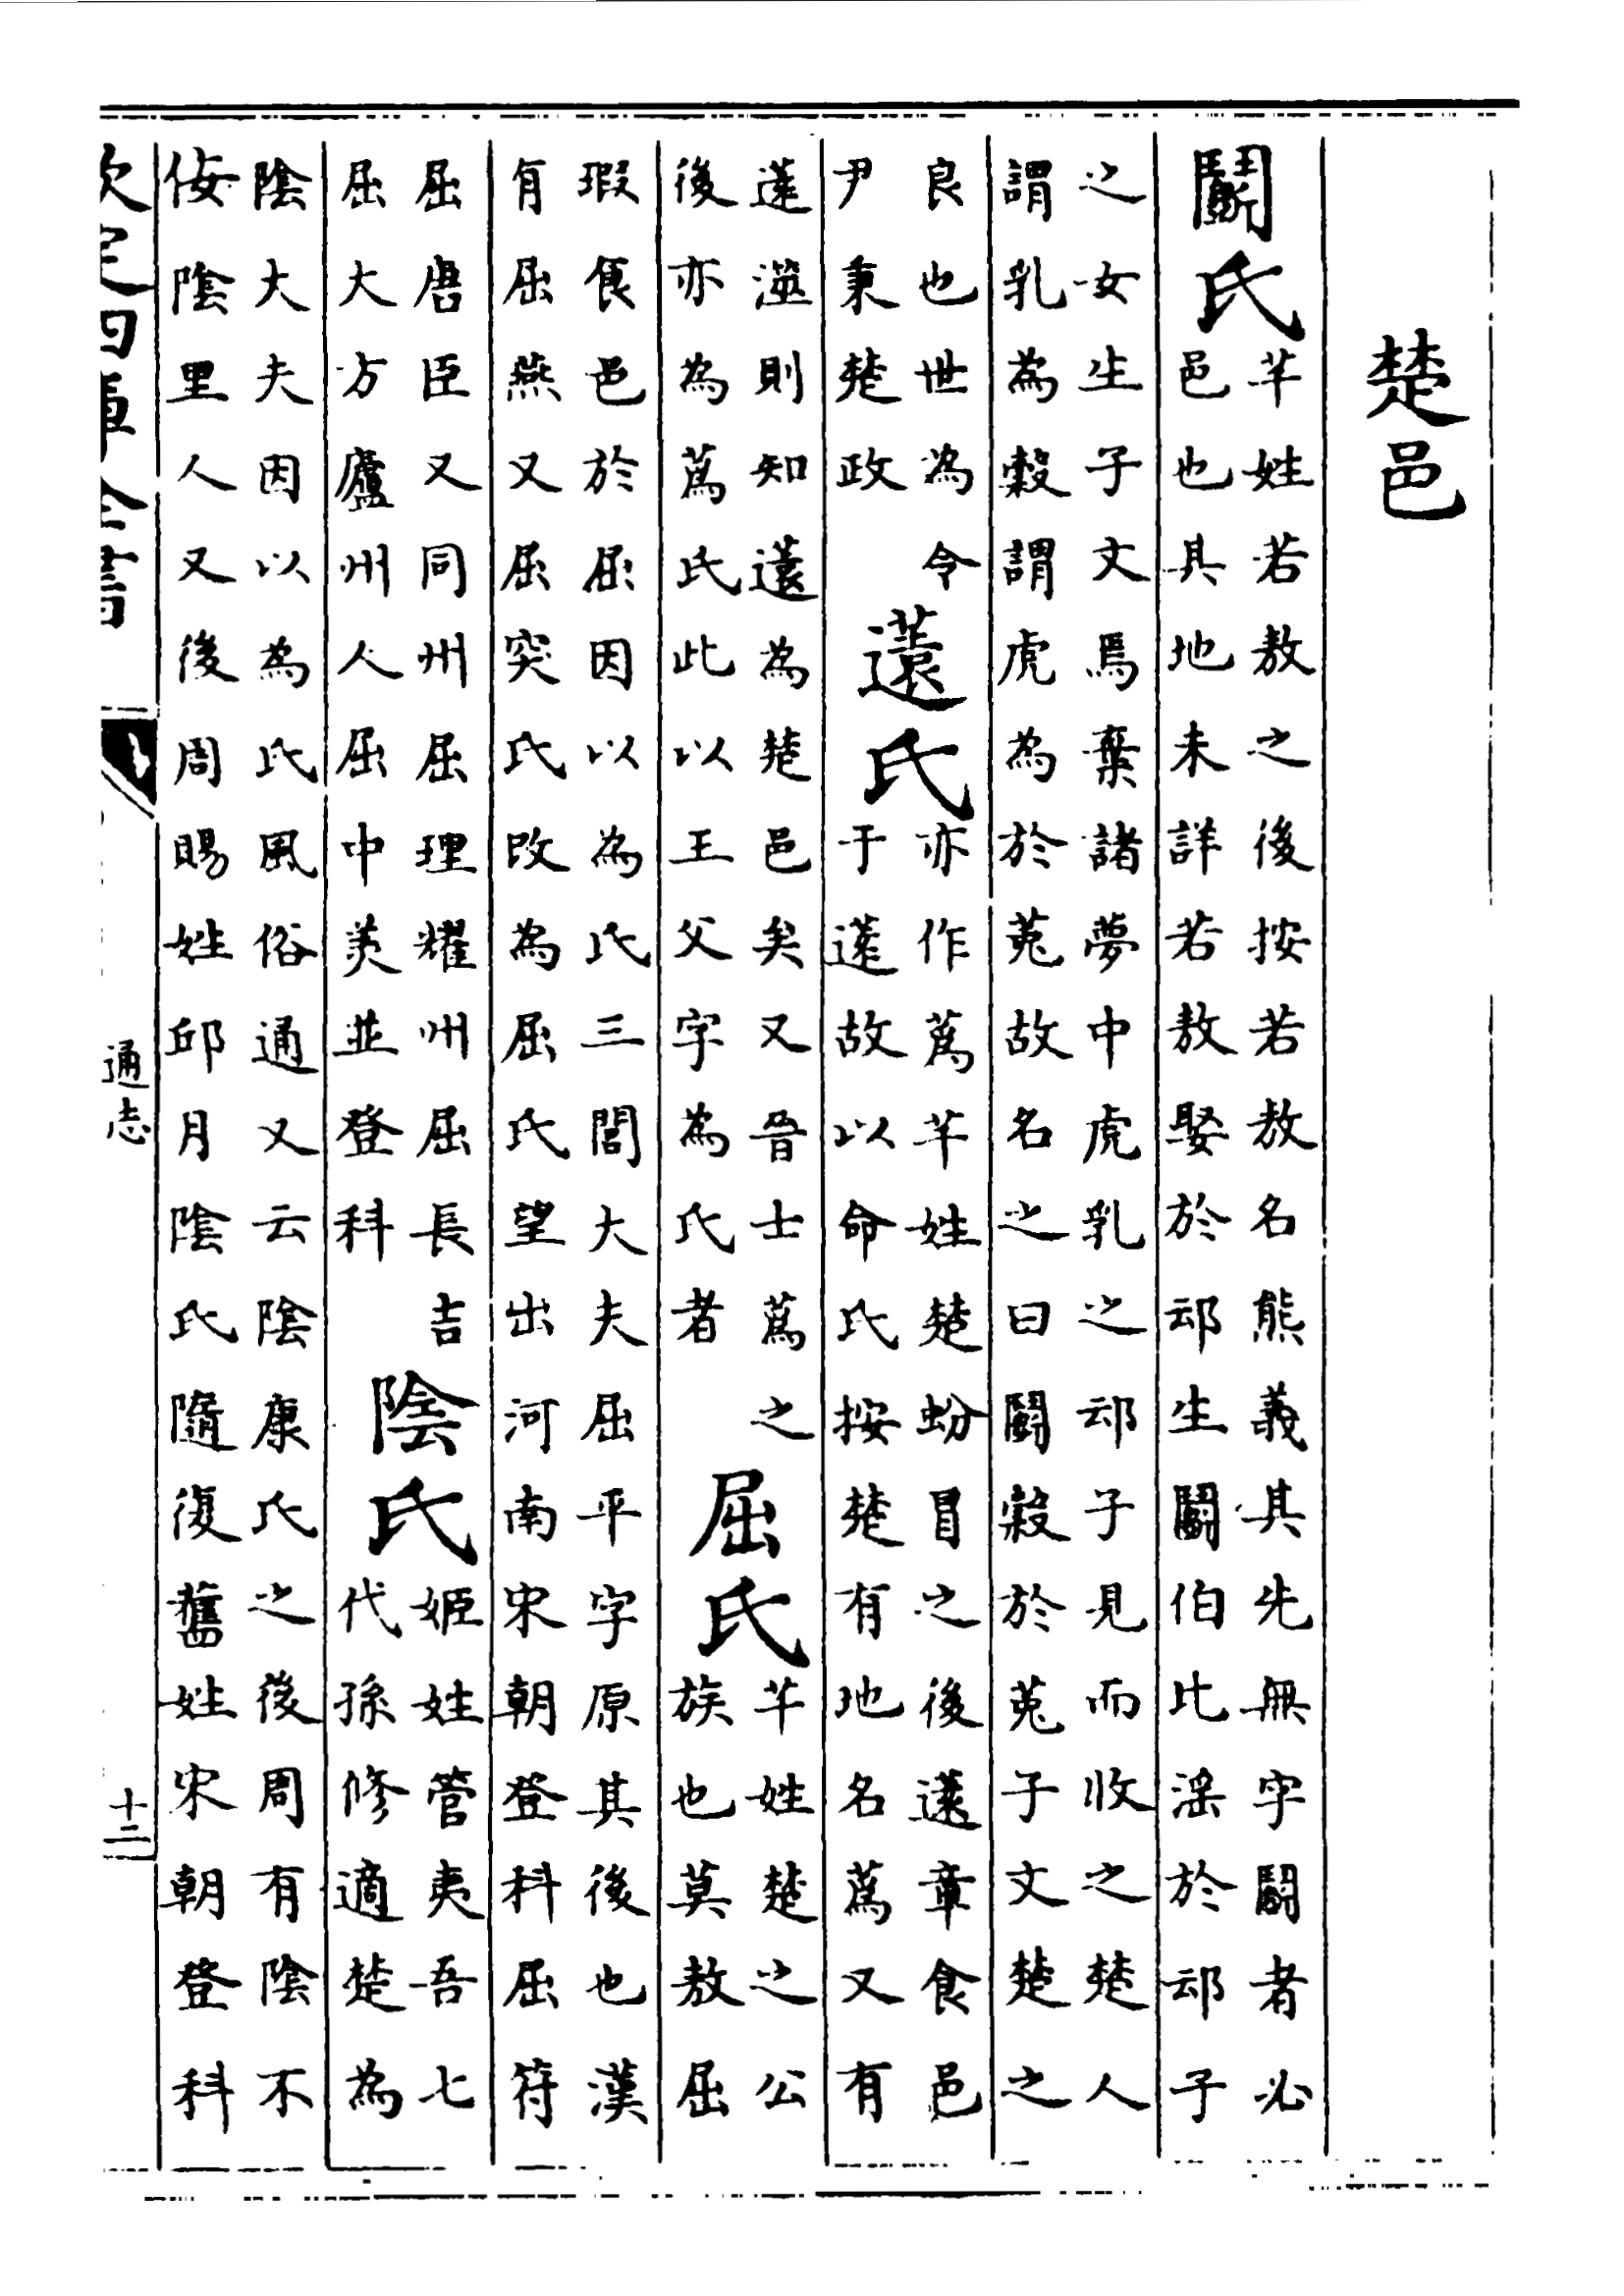 楚邑
鬬氏
芊姓若敖之後按若敖名熊義其先無字鬬者必
邑也其地未詳若敖娶於䢵生鬬伯比淫於䢵子
之女生子文焉棄諸夢中虎乳之䢵子見而收之楚人
謂乳為穀謂虎為於菟故名之曰鬬穀於菟子文楚之
良也世為令
尹秉楚政
薳氏
亦作蒍芊姓楚蚡冒之後薳章食邑
于薳故以命氏按楚有地名蒍又有
薳澨則知薳為楚邑矣又晉士蒍之
後亦為蒍氏此以王父字為氏者
屈氏
芊姓楚之公
族也莫敖屈
瑕食邑於屈因以為氏三閭大夫屈平字原其後也漢
有屈燕又屈突氏改為屈氏望出河南宋朝登科屈符
屈唐臣又同州屈理耀州屈長吉
屈大方廬州人屈中美並登科
陰氏
姬姓管夷吾七
代孫修適楚為
陰大夫因以為氏風俗通又云陰康氏之後周有陰不
佞陰里人又後周賜姓邱月陰氏隨復舊姓宋朝登科
欽定四庫全書
通志
十二